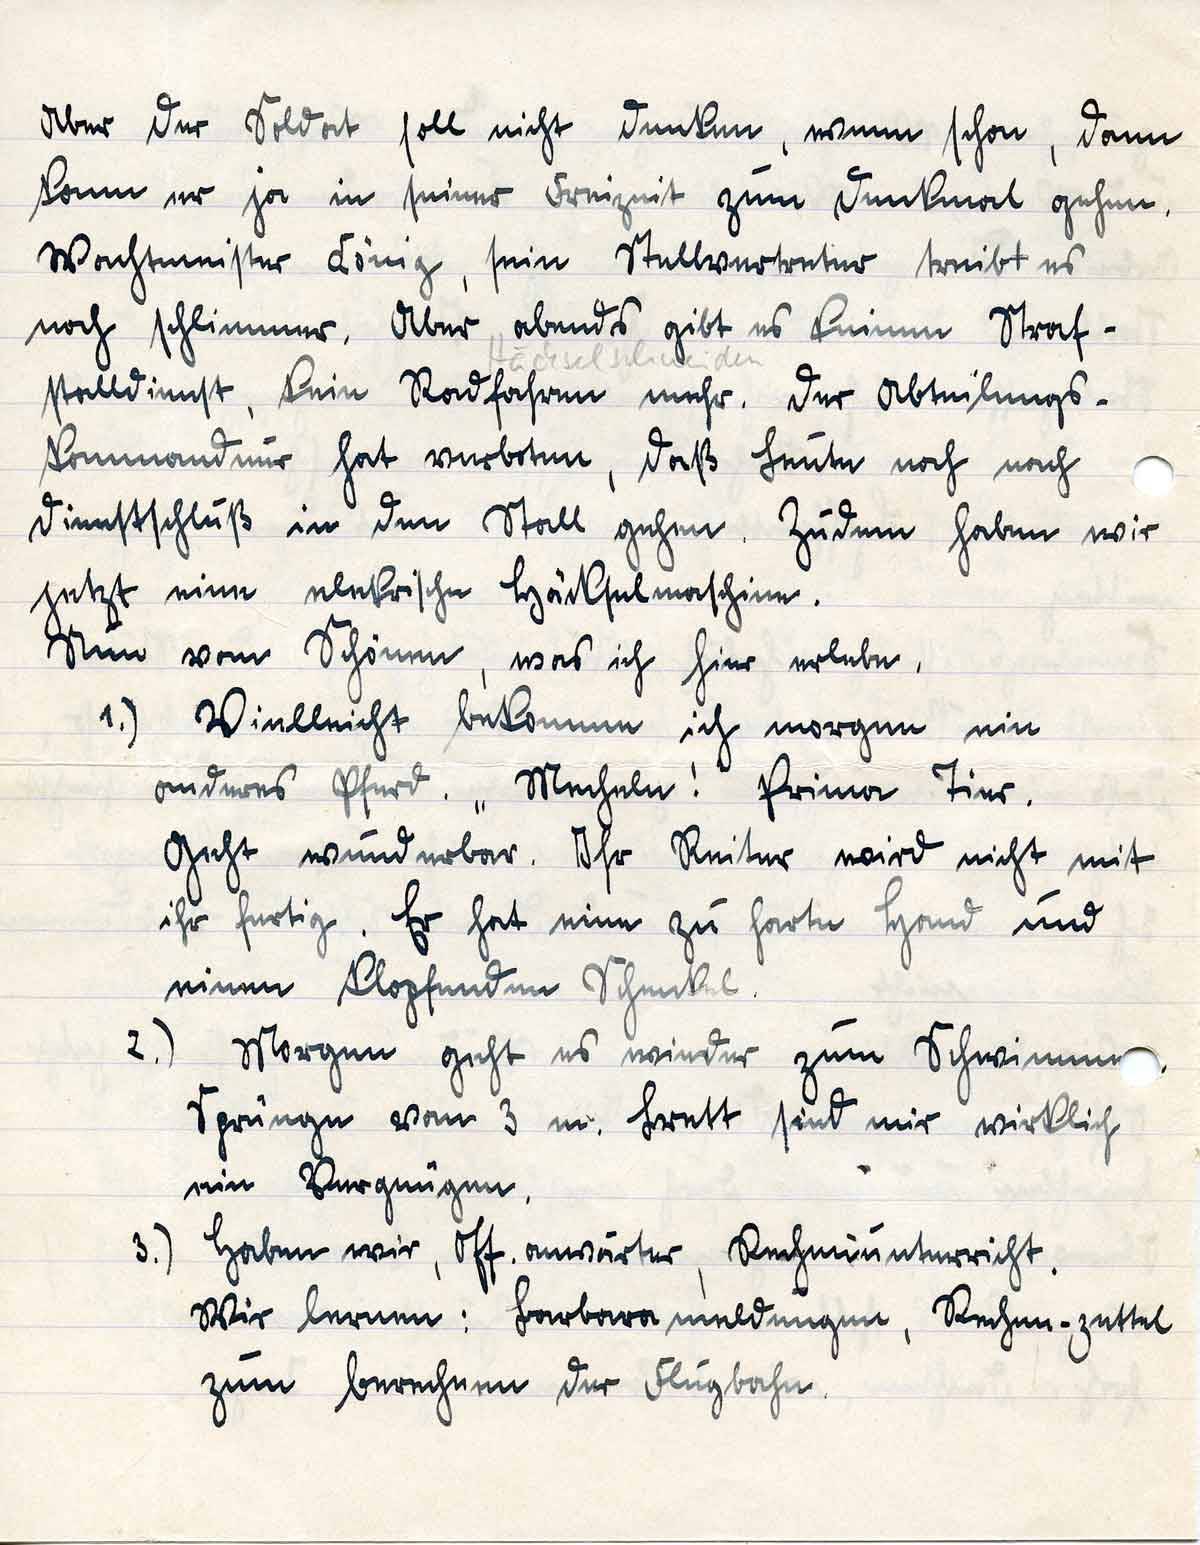 Aber der Soldat soll nicht denken, wenn schon, dann
kann er ja in seiner Freizeit zum Denkmal gehen.
Wachtmeister König, sein Stellvertreter treibt es
noch schlimmer. Aber abends gibt es keinen Straf-
Häckselschneiden
stalldienst, kein Radfahren mehr. Der Abteilungs-
kommandeur hat verboten, daß Leute noch nach
Dienstschluß in den Stall gehen. Zudem haben wir
jetzt eine elekrische Häckselmaschine.
Nun vom Schönen, was ich hier erlebe.
1.) Vielleicht bekomme ich morgen ein
anderes Pferd. „Mecheln! Prima Tier.
Geht wunderbar. Ihr Reiter wird nicht mit
ihr fertig. Er hat eine zu harte Hand und
einen klopfenden Schenkel.
2.) Morgen geht es wieder zum Schwimmen.
Sprünge vom 3 m. Brett sind mir wirklich
ein Vergnügen.
3.) Haben wir, Off. anwärter, Rechenunterricht.
Wir lernen: Barbarameldungen, Rechen-zettel
zum berechnen der Flugbahn.